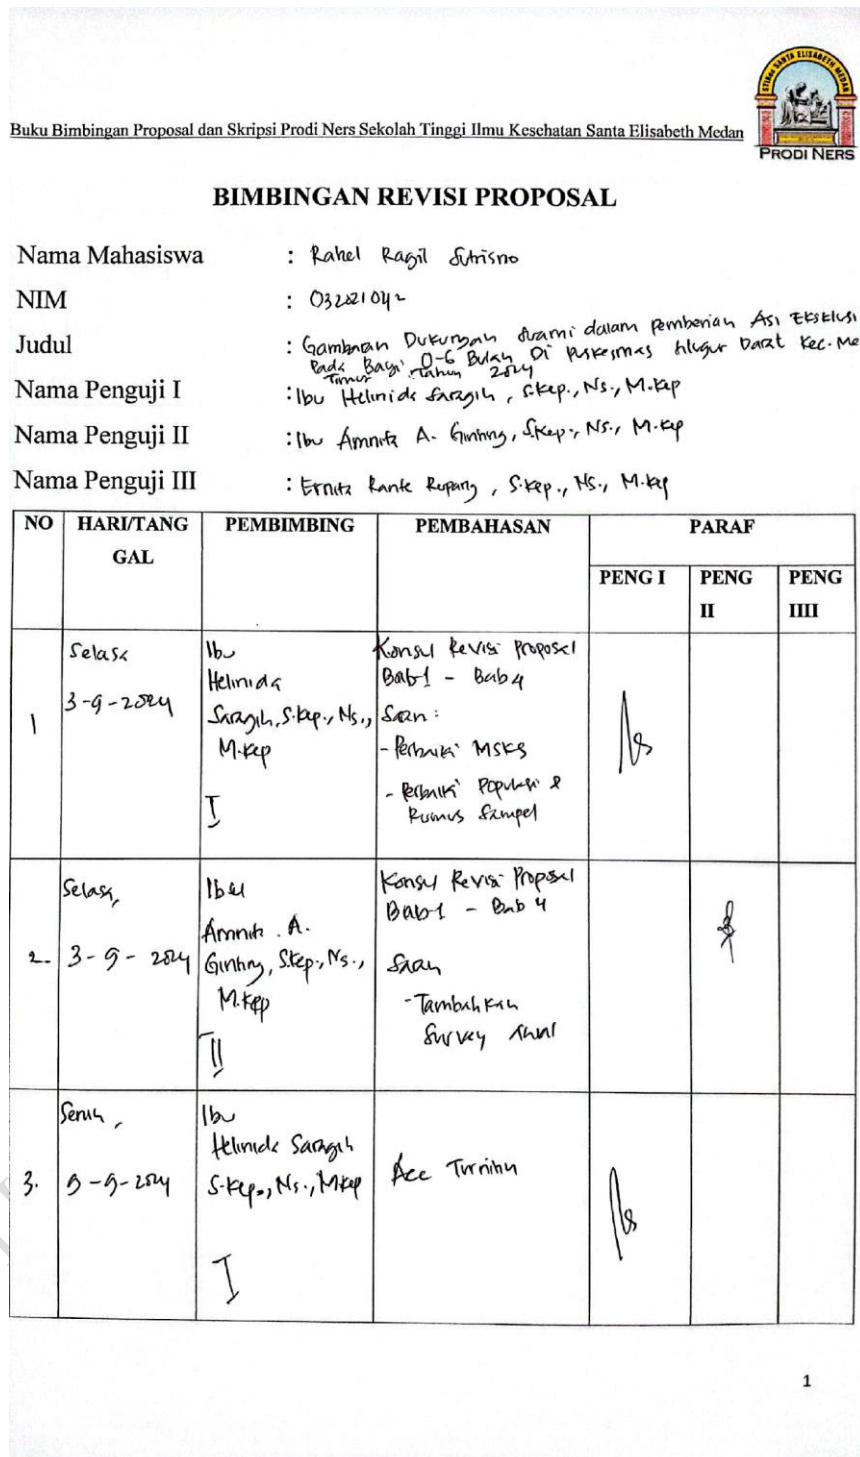 STIKes SANTA ELISABETH MEDAN
PRODI NERS
Buku Bimbingan Proposal dan Skripsi Prodi Ners Sekolah Tinggi Ilmu Kesehatan Santa Elisabeth Medan
BIMBINGAN REVISI PROPOSAL
Nama Mahasiswa : Rahel Ragil Sutrisno
NIM : 032021042
Judul : Gambaran Dukungan suami dalam Pemberian Asi Eksklusi
Pada Bayi 0-6 Bulan Di Puskesmas Glugur Darat Kec. Me
Timur Tahun 2024
Nama Penguji I : Ibu Helinida Saragih, S.Kep., Ns., M.Kep
Nama Penguji II : Ibu Amnita A. Ginting, S.Kep., Ns., M.Kep
Nama Penguji III : Ernita Rante Rupang, S.Kep., Ns., M.Kep
NO HARI/TANG PEMBIMBING PEMBAHASAN PARAF
GAL
PENG I PENG PENG
II IIII
1
Selasa
3-9-2024
Ibu
Helinida
Saragih, S.Kep., Ns.,
M.Kep
I
Konsul Revisi Proposal
Bab 1 - Bab 4
Saran :
- Perbaiki MSKS
- Perbaiki Populasi &
Rumus Sampel
2.
Selasa,
3-9-2024
Ibu
Amnita. A.
Ginting, S.Kep., Ns.,
M.Kep
II
Konsul Revisi Proposal
Bab 1 - Bab 4
Saran
- Tambahkan
Survey Awal
3.
Senin,
9-9-2024
Ibu
Helinida Saragih
S.Kep., Ns., M.Kep
I
Acc Turnitin
1